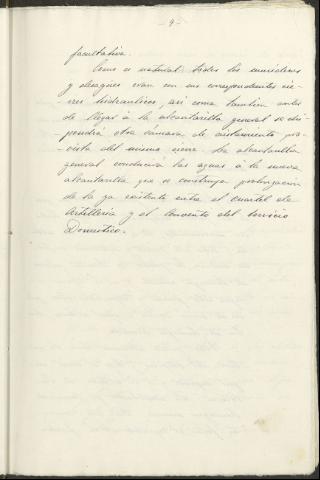 - 9 -
facultativa.
Como es natural todos los sumideros
y desagües eran con sus correspondientes cie-
rres hidraulicos, así como tambien antes
de llegar á la alcantarilla general se dis-
pondrá otra camara de aislamiento pro-
vista del mismo cierre. La alcantarilla
general conducirá las aguas á la nueva
alcantarilla que se construya prolongacion
de la ya existente entre el cuartel de
Artilleria y el Convento del Servicio
Domestico.